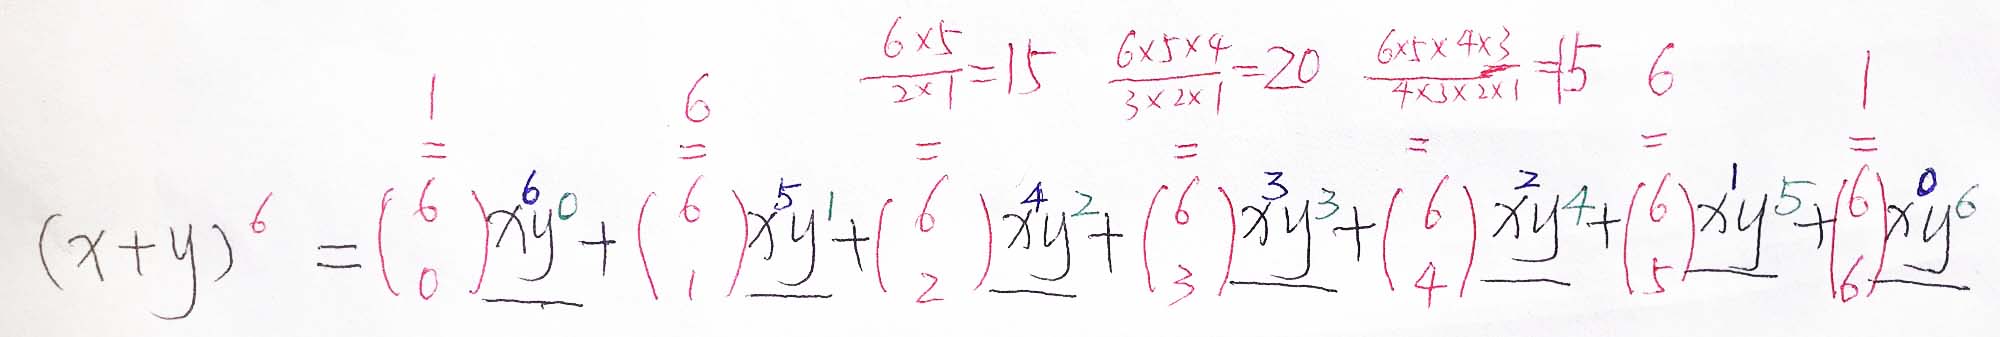 1 6 6×5/2×1=15 6×5×4/3×2×1=20 6×5×4×3/4×3×2×1=15 6 1
= = = = = = =
(x+y)⁶ = (6 0)x⁶y⁰+(6 1)x⁵y¹+(6 2)x⁴y²+(6 3)x³y³+(6 4)x²y⁴+(6 5)x¹y⁵+(6 6)x⁰y⁶